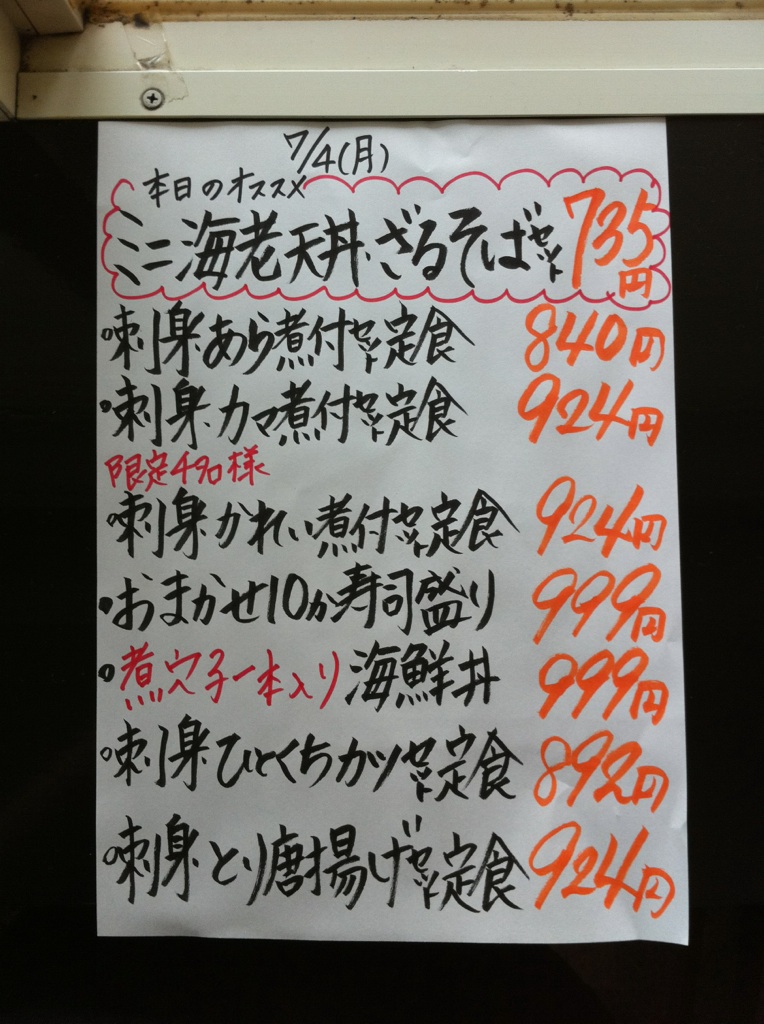 7/4(月)
本日のオススメ
ミニ海老天丼、ざるそばセット 735円
・刺身あら煮付セット定食 840円
・刺身、カマ煮付セット定食 924円
限定4名様
・刺身、かれい煮付セット定食 924円
・おまかせ10カ寿司盛り 999円
・煮穴子一本入り海鮮丼 999円
・刺身、ひとくちカツセット定食 892円
・刺身、とり唐揚げセット定食 924円